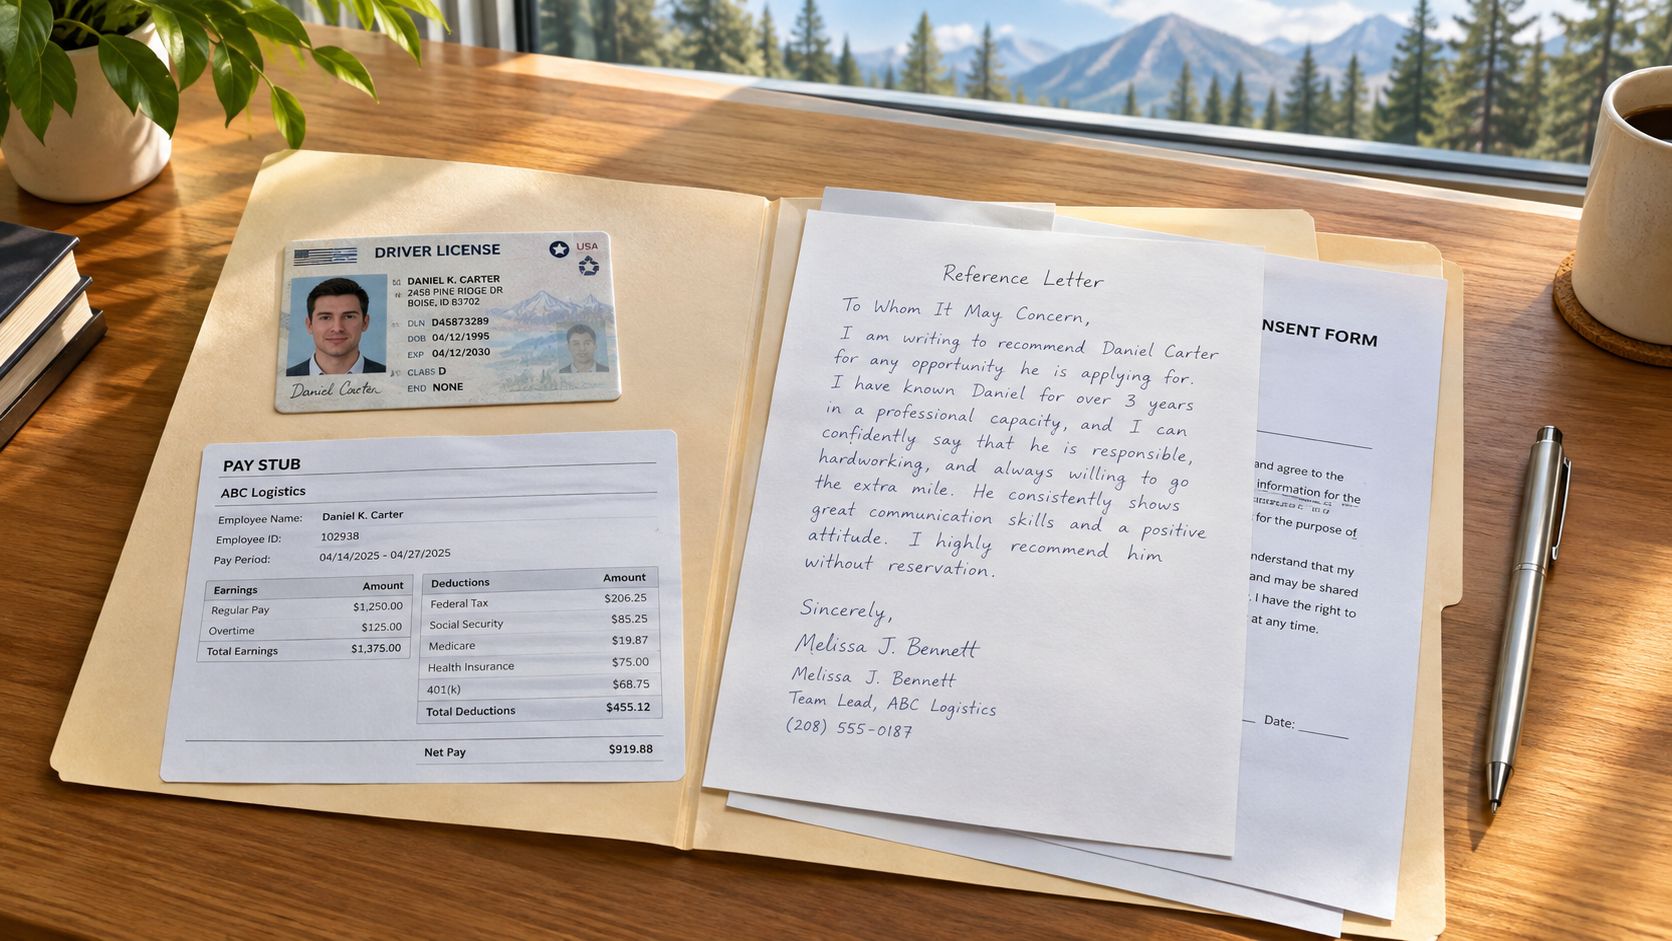 DRIVER LICENSE
USA
DANIEL K. CARTER
2458 PINE RIDGE DR
BOISE, ID 83702
DLN D45873289
DOB 04/12/1995
EXP 04/12/2030
CLABS D
END NONE
Daniel Carter
PAY STUB
ABC Logistics
Employee Name: Daniel K. Carter
Employee ID: 102938
Pay Period: 04/14/2025 - 04/27/2025
Earnings Amount
Regular Pay $1,250.00
Overtime $125.00
Total Earnings $1,375.00
Deductions Amount
Federal Tax $206.25
Social Security $85.25
Medicare $19.87
Health Insurance $75.00
401(k) $68.75
Total Deductions $455.12
Net Pay $919.88
Reference Letter
To Whom It May Concern,
I am writing to recommend Daniel Carter
for any opportunity he is applying for.
I have known Daniel for over 3 years
in a professional capacity, and I can
confidently say that he is responsible,
hardworking, and always willing to go
the extra mile. He consistently shows
great communication skills and a positive
attitude. I highly recommend him
without reservation.
Sincerely,
Melissa J. Bennett
Melissa J. Bennett
Team Lead, ABC Logistics
(208) 555-0187
NSENT FORM
and agree to the
information for the
for the purpose of
nderstand that my
and may be shared
I have the right to
at any time.
Date: